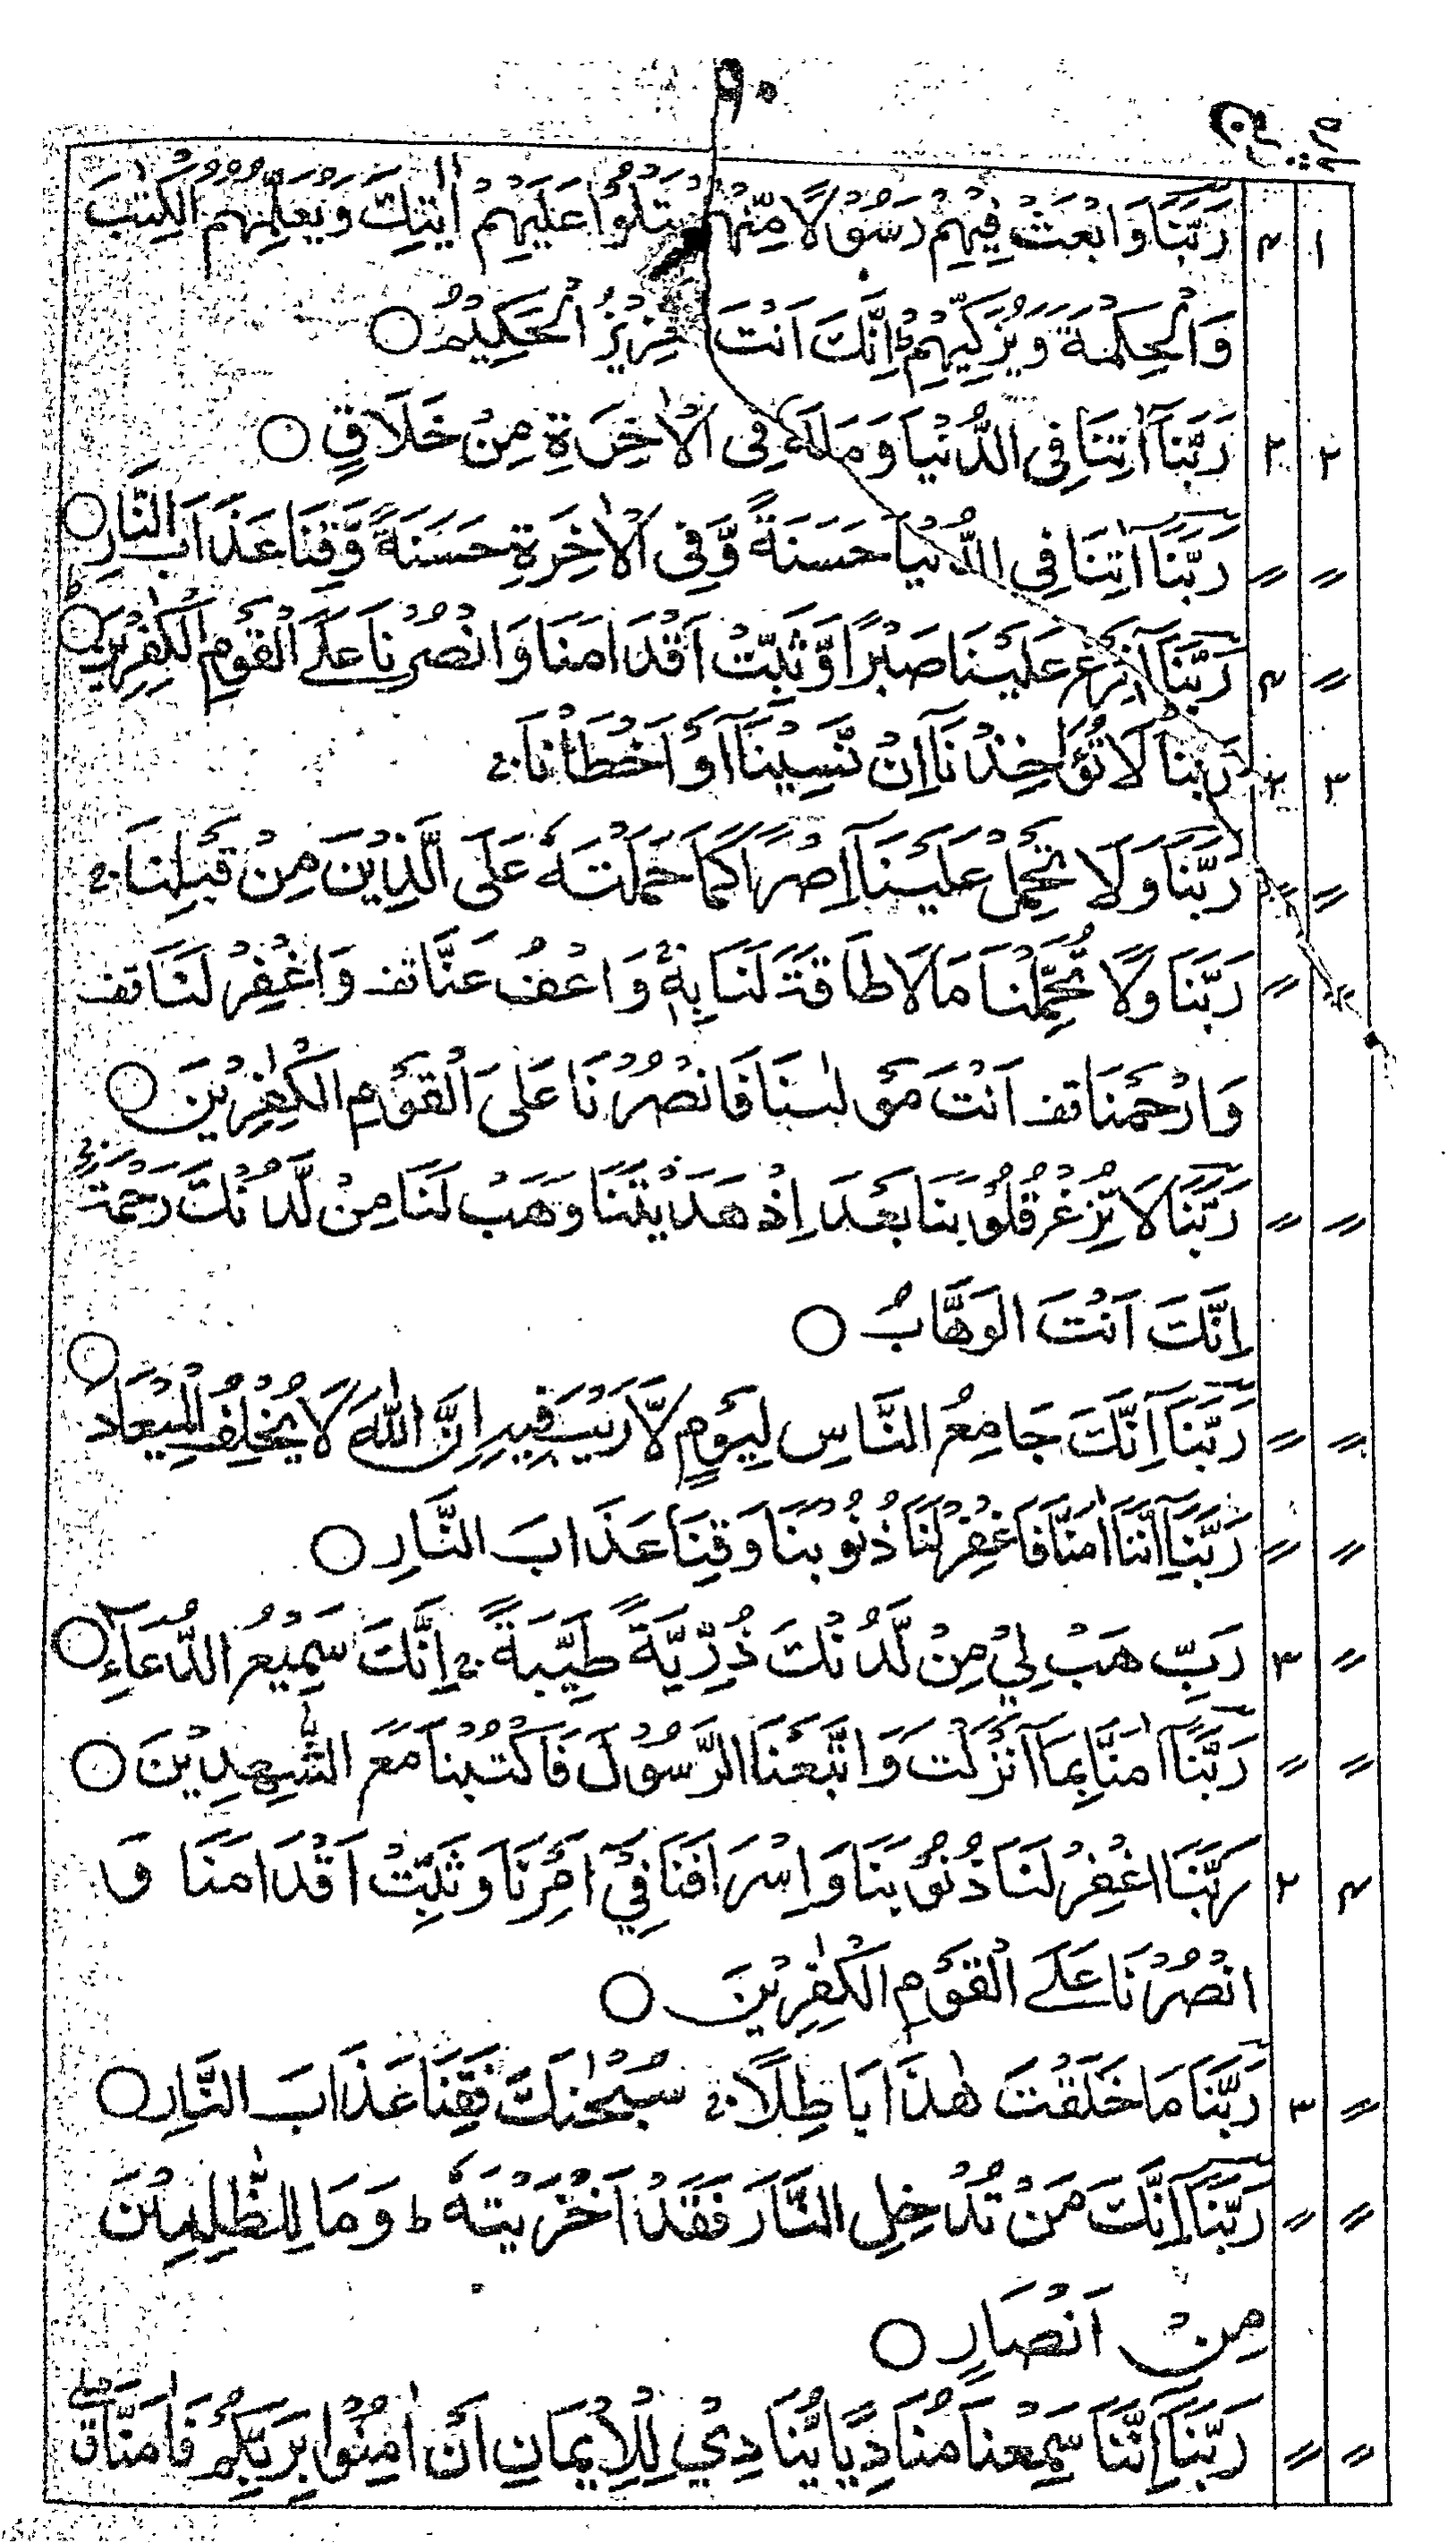 ۹۰
۱ ۴ رَبَّنَا وَابْعَثْ فِيْهِمْ رَسُوْلًا مِّنْهُمْ يَتْلُوْا عَلَيْهِمْ اٰيٰتِكَ وَيُعَلِّمُهُمُ الْكِتٰبَ
وَالْحِكْمَةَ وَيُزَكِّيْهِمْ ؕ اِنَّكَ اَنْتَ الْعَزِيْزُ الْحَكِيْمُ ○
۲ ۲ رَبَّنَآ اٰتِنَا فِى الدُّنْيَا وَمَا لَهٗ فِى الْاٰخِرَةِ مِنْ خَلَاقٍ ○
〃 〃 رَبَّنَآ اٰتِنَا فِي الدُّنْيَا حَسَنَةً وَّفِى الْاٰخِرَةِ حَسَنَةً وَّقِنَا عَذَابَ النَّارِ ○
〃 ۴ رَبَّنَآ اَفْرِغْ عَلَيْنَا صَبْرًا وَّثَبِّتْ اَقْدَامَنَا وَانْصُرْنَا عَلَى الْقَوْمِ الْكٰفِرِيْنَ ○
۳ ۲ رَبَّنَا لَا تُؤَاخِذْنَآ اِنْ نَّسِيْنَآ اَوْ اَخْطَاْنَا ج
〃 〃 رَبَّنَا وَلَا تَحْمِلْ عَلَيْنَآ اِصْرًا كَمَا حَمَلْتَهٗ عَلَى الَّذِيْنَ مِنْ قَبْلِنَا ج
〃 〃 رَبَّنَا وَلَا تُحَمِّلْنَا مَا لَا طَاقَةَ لَنَا بِهٖ ج وَاعْفُ عَنَّا قف وَاغْفِرْ لَنَا قف
وَارْحَمْنَا قف اَنْتَ مَوْلٰىنَا فَانْصُرْنَا عَلَى الْقَوْمِ الْكٰفِرِيْنَ ○
〃 〃 رَبَّنَا لَا تُزِغْ قُلُوْبَنَا بَعْدَ اِذْ هَدَيْتَنَا وَهَبْ لَنَا مِنْ لَّدُنْكَ رَحْمَةً ج
اِنَّكَ اَنْتَ الْوَهَّابُ ○
〃 〃 رَبَّنَآ اِنَّكَ جَامِعُ النَّاسِ لِيَوْمٍ لَّا رَيْبَ فِيْهِ اِنَّ اللّٰهَ لَا يُخْلِفُ الْمِيْعَادَ ○
〃 〃 رَبَّنَآ اِنَّنَآ اٰمَنَّا فَاغْفِرْ لَنَا ذُنُوْبَنَا وَقِنَا عَذَابَ النَّارِ ○
〃 ۳ رَبِّ هَبْ لِيْ مِنْ لَّدُنْكَ ذُرِّيَّةً طَيِّبَةً ج اِنَّكَ سَمِيْعُ الدُّعَآءِ ○
〃 〃 رَبَّنَآ اٰمَنَّا بِمَآ اَنْزَلْتَ وَاتَّبَعْنَا الرَّسُوْلَ فَاكْتُبْنَا مَعَ الشّٰهِدِيْنَ ○
۴ ۲ رَبَّنَا اغْفِرْ لَنَا ذُنُوْبَنَا وَاِسْرَافَنَا فِيْٓ اَمْرِنَا وَثَبِّتْ اَقْدَامَنَا وَ
انْصُرْنَا عَلَے الْقَوْمِ الْكٰفِرِيْنَ ○
〃 ۳ رَبَّنَا مَا خَلَقْتَ هٰذَا بَاطِلًا ج سُبْحٰنَكَ فَقِنَا عَذَابَ النَّارِ ○
〃 〃 رَبَّنَآ اِنَّكَ مَنْ تُدْخِلِ النَّارَ فَقَدْ اَخْزَيْتَهٗ ط وَمَا لِلظّٰلِمِيْنَ
مِنْ اَنْصَارٍ ○
〃 〃 رَبَّنَآ اِنَّنَا سَمِعْنَا مُنَادِيًا يُّنَادِيْ لِلْاِيْمَانِ اَنْ اٰمِنُوْا بِرَبِّكُمْ فَاٰمَنَّا ق صلے